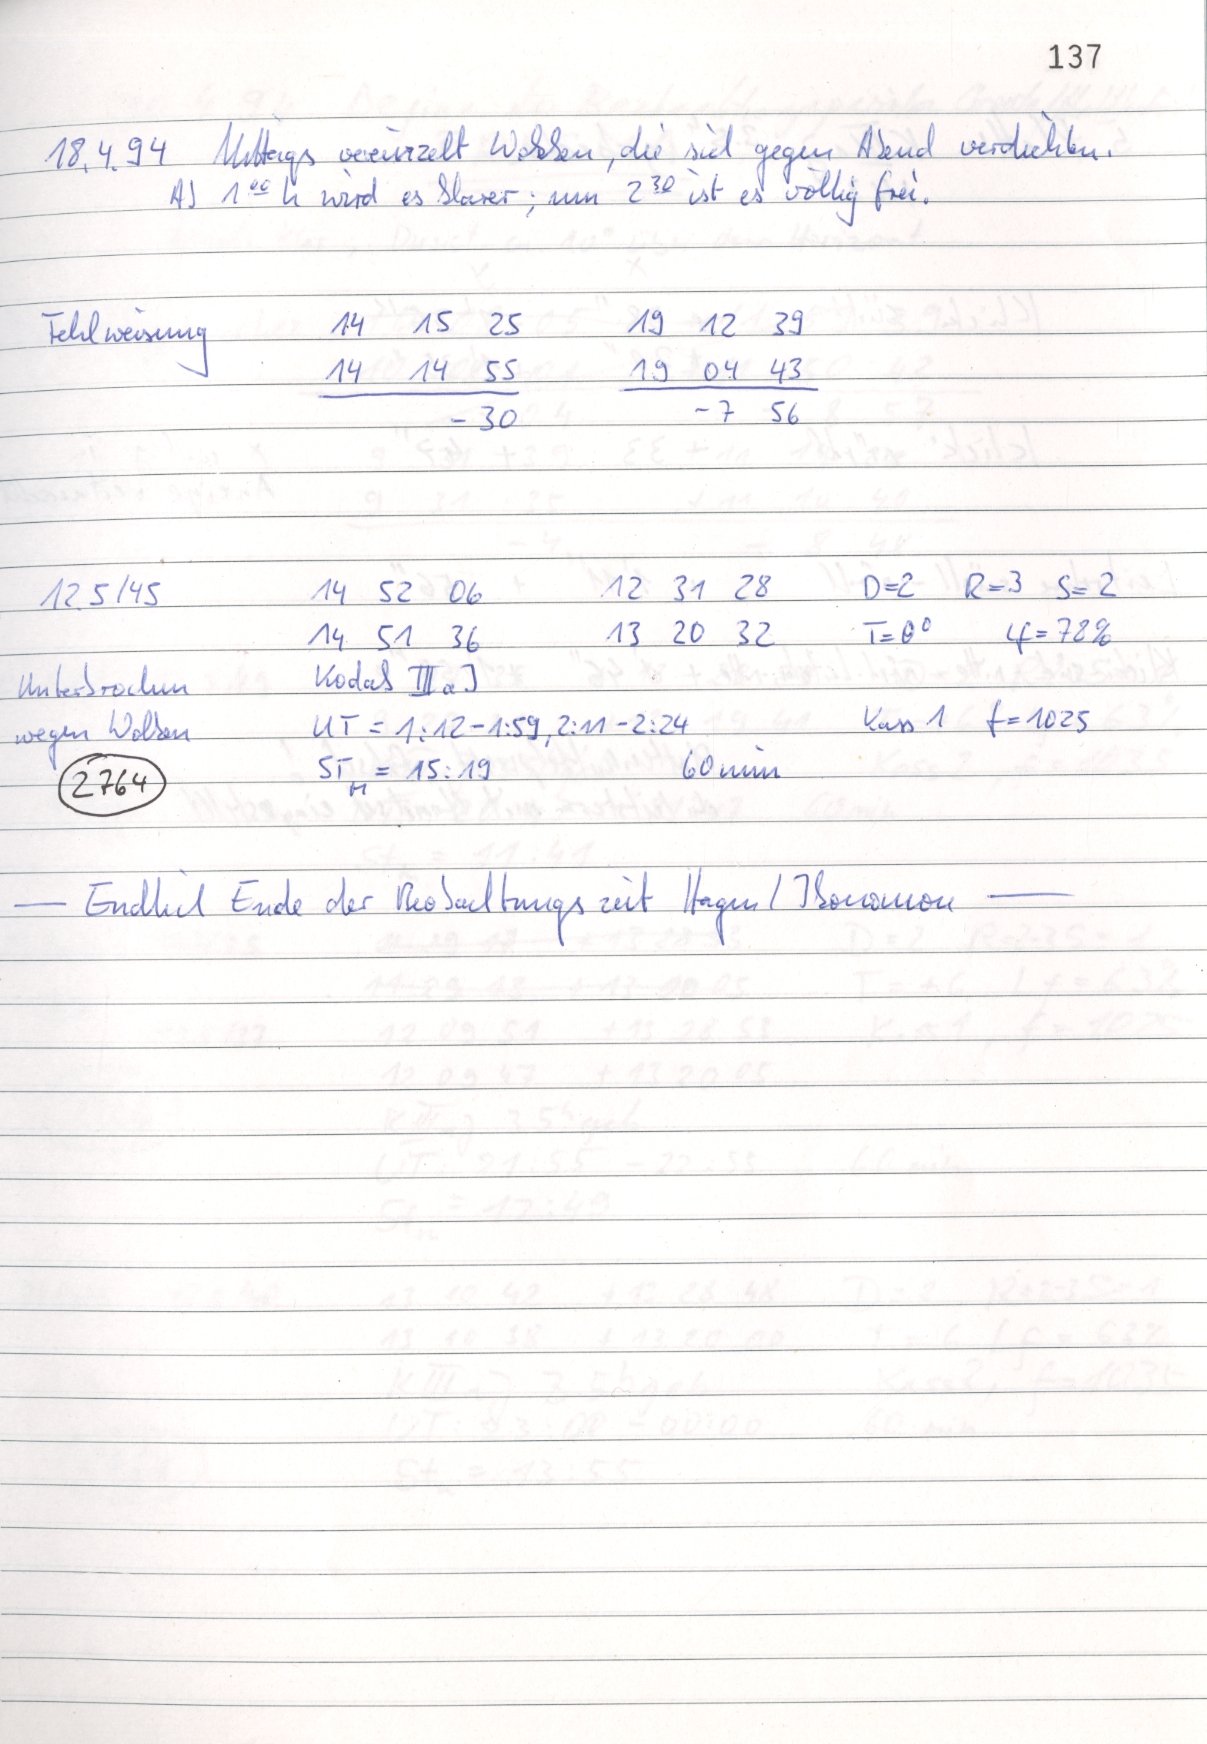 137
18.4.94 Mittags vereinzelt Wolken, die sich gegen Abend verdichten.
Ab 1⁰⁰ h wird es klarer; um 2³⁰ ist es völlig frei.
Fehlweisung 14 15 25 19 12 39
14 14 55 19 04 43
-30 -7 56
125/45 14 52 06 12 31 28 D=2 R=3 S=2
14 51 36 13 20 32 T=0° φ=78%
Unterbrochen Kodak IIIaJ
wegen Wolken UT = 1:12-1:59, 2:11-2:24 Kass 1 f=1025
2764 STM = 15:19 60 min
— Endlich Ende der Beobachtungszeit Hagen /